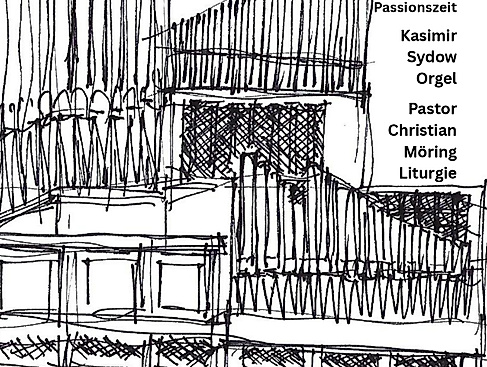 Passionszeit
Kasimir
Sydow
Orgel
Pastor
Christian
Möring
Liturgie